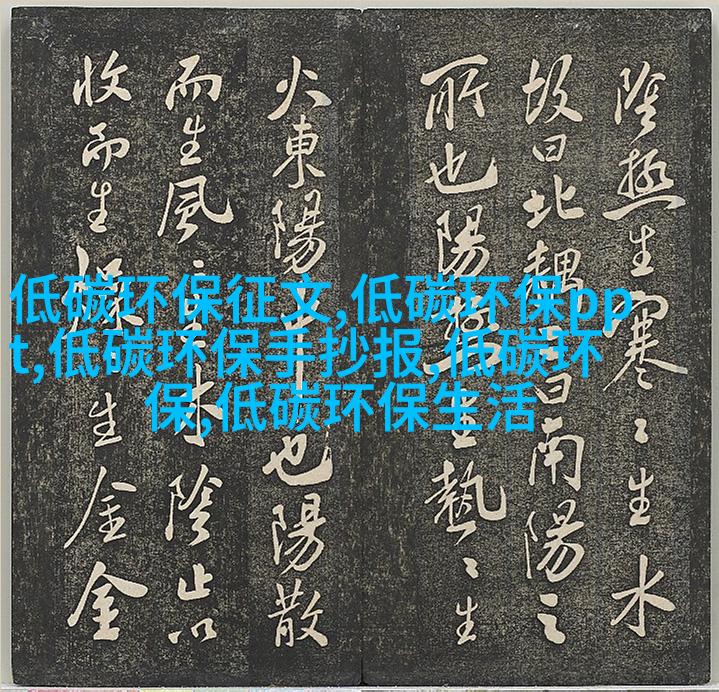 陰極生寒〻生水
故曰北曰南陽之
所也陽極生熱〻生
火東陽也陽散
而生風〻生木陰止以
收而生燥生金金
低碳环保征文,低碳环保pp
t,低碳环保手抄报,低碳环
保,低碳环保生活